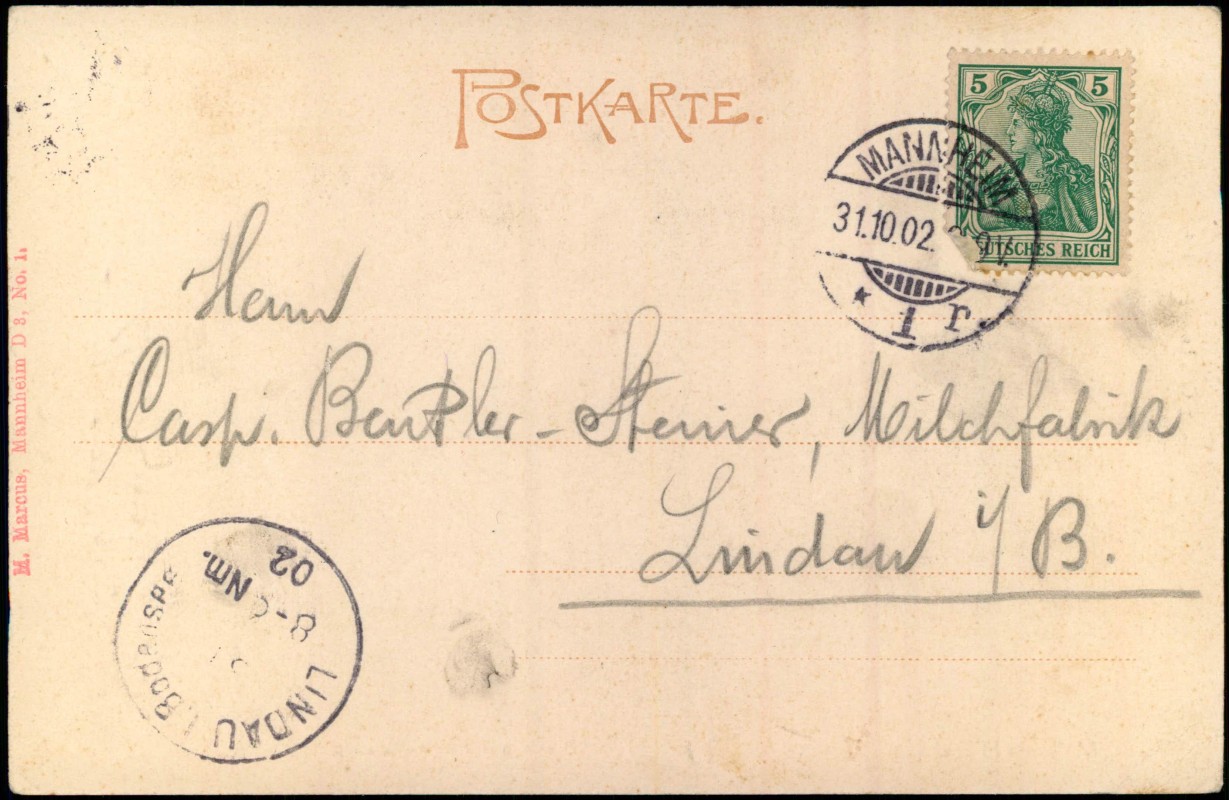 POSTKARTE.
5 5
DEUTSCHES REICH
MANNHEIM
31.10.02. 8-9V.
* 1 r.
Herrn
Casp. Beutler-Steiner, Milchfabrik
Lindau i/B.
M. Marcus, Mannheim D 3, No. 1.
LINDAU i. Bodensee
8-9 Nm.
02